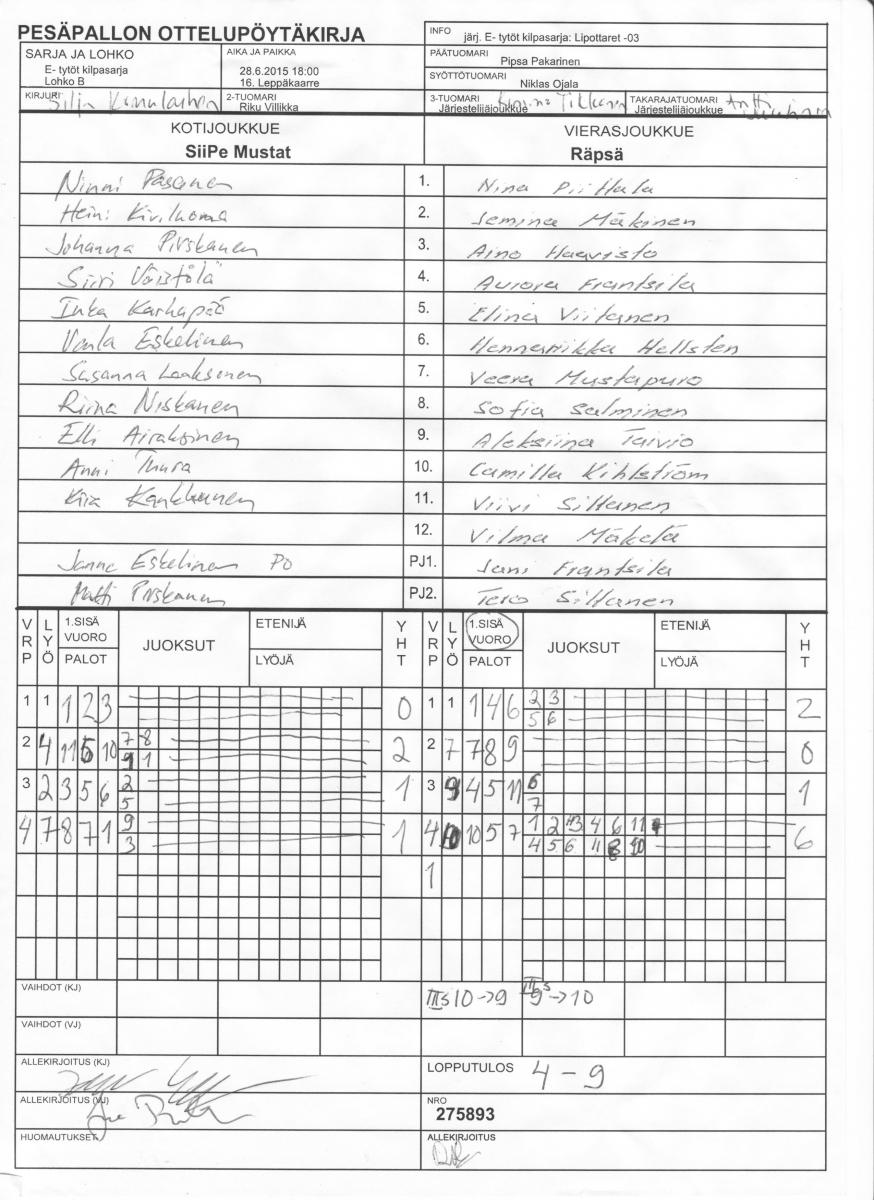 PESÄPALLON OTTELUPÖYTÄKIRJA
INFO järj. E- tytöt kilpasarja: Lipottaret -03
SARJA JA LOHKO
E- tytöt kilpasarja
Lohko B
AIKA JA PAIKKA
28.6.2015 18:00
16. Leppäkaarre
PÄÄTUOMARI Pipsa Pakarinen
SYÖTTÖTUOMARI Niklas Ojala
KIRJURI Silja
2-TUOMARI Riku Villikka
3-TUOMARI Järjestelijäjoukkue
TAKARAJATUOMARI Järjestelijäjoukkue Antti
KOTIJOUKKUE
SiiPe Mustat
VIERASJOUKKUE
Räpsä
Ninni Pasanen 1. Nina Piittala
Heini Kiviluoma 2. Jemina Mäkinen
Johanna Pirskanen 3. Aino Haavisto
Siiri Väistölä 4. Aurora Frantsila
Inka Karhapää 5. Elina Viitanen
Venla Eskelinen 6. Hennariikka Hellsten
Susanna Laaksonen 7. Veera Mustapuro
Riina Niskanen 8. Sofia Salminen
Elli Airaksinen 9. Aleksiina Taivio
Anni Tuura 10. Camilla Kihlström
Kira Kankkunen 11. Viivi Siltanen
12. Vilma Mäkelä
Janne Eskelinen PO PJ1. Jani Frantsila
Matti Pirskanen PJ2. Tero Siltanen
VRP LYÖ 1.SISÄ VUORO PALOT JUOKSUT ETENIJÄ LYÖJÄ YHT VRP LYÖ 1.SISÄ VUORO PALOT JUOKSUT ETENIJÄ LYÖJÄ YHT
1 1 1 2 3 0 1 1 1 4 6 2 3 2
5 6
2 4 11 5 10 7 8 2 2 7 7 8 9 0
9 1
3 2 3 5 6 2 1 3 9 4 5 11 6 1
5 7
4 7 8 7 1 9 1 4 10 10 5 7 1 2 3 4 6 11 6
3 4 5 6 11 8 10
1
VAIHDOT (KJ) IIIs 10->9 IIIs 9->10
VAIHDOT (VJ)
ALLEKIRJOITUS (KJ)
LOPPUTULOS 4 - 9
ALLEKIRJOITUS (VJ)
NRO
275893
HUOMAUTUKSET
ALLEKIRJOITUS